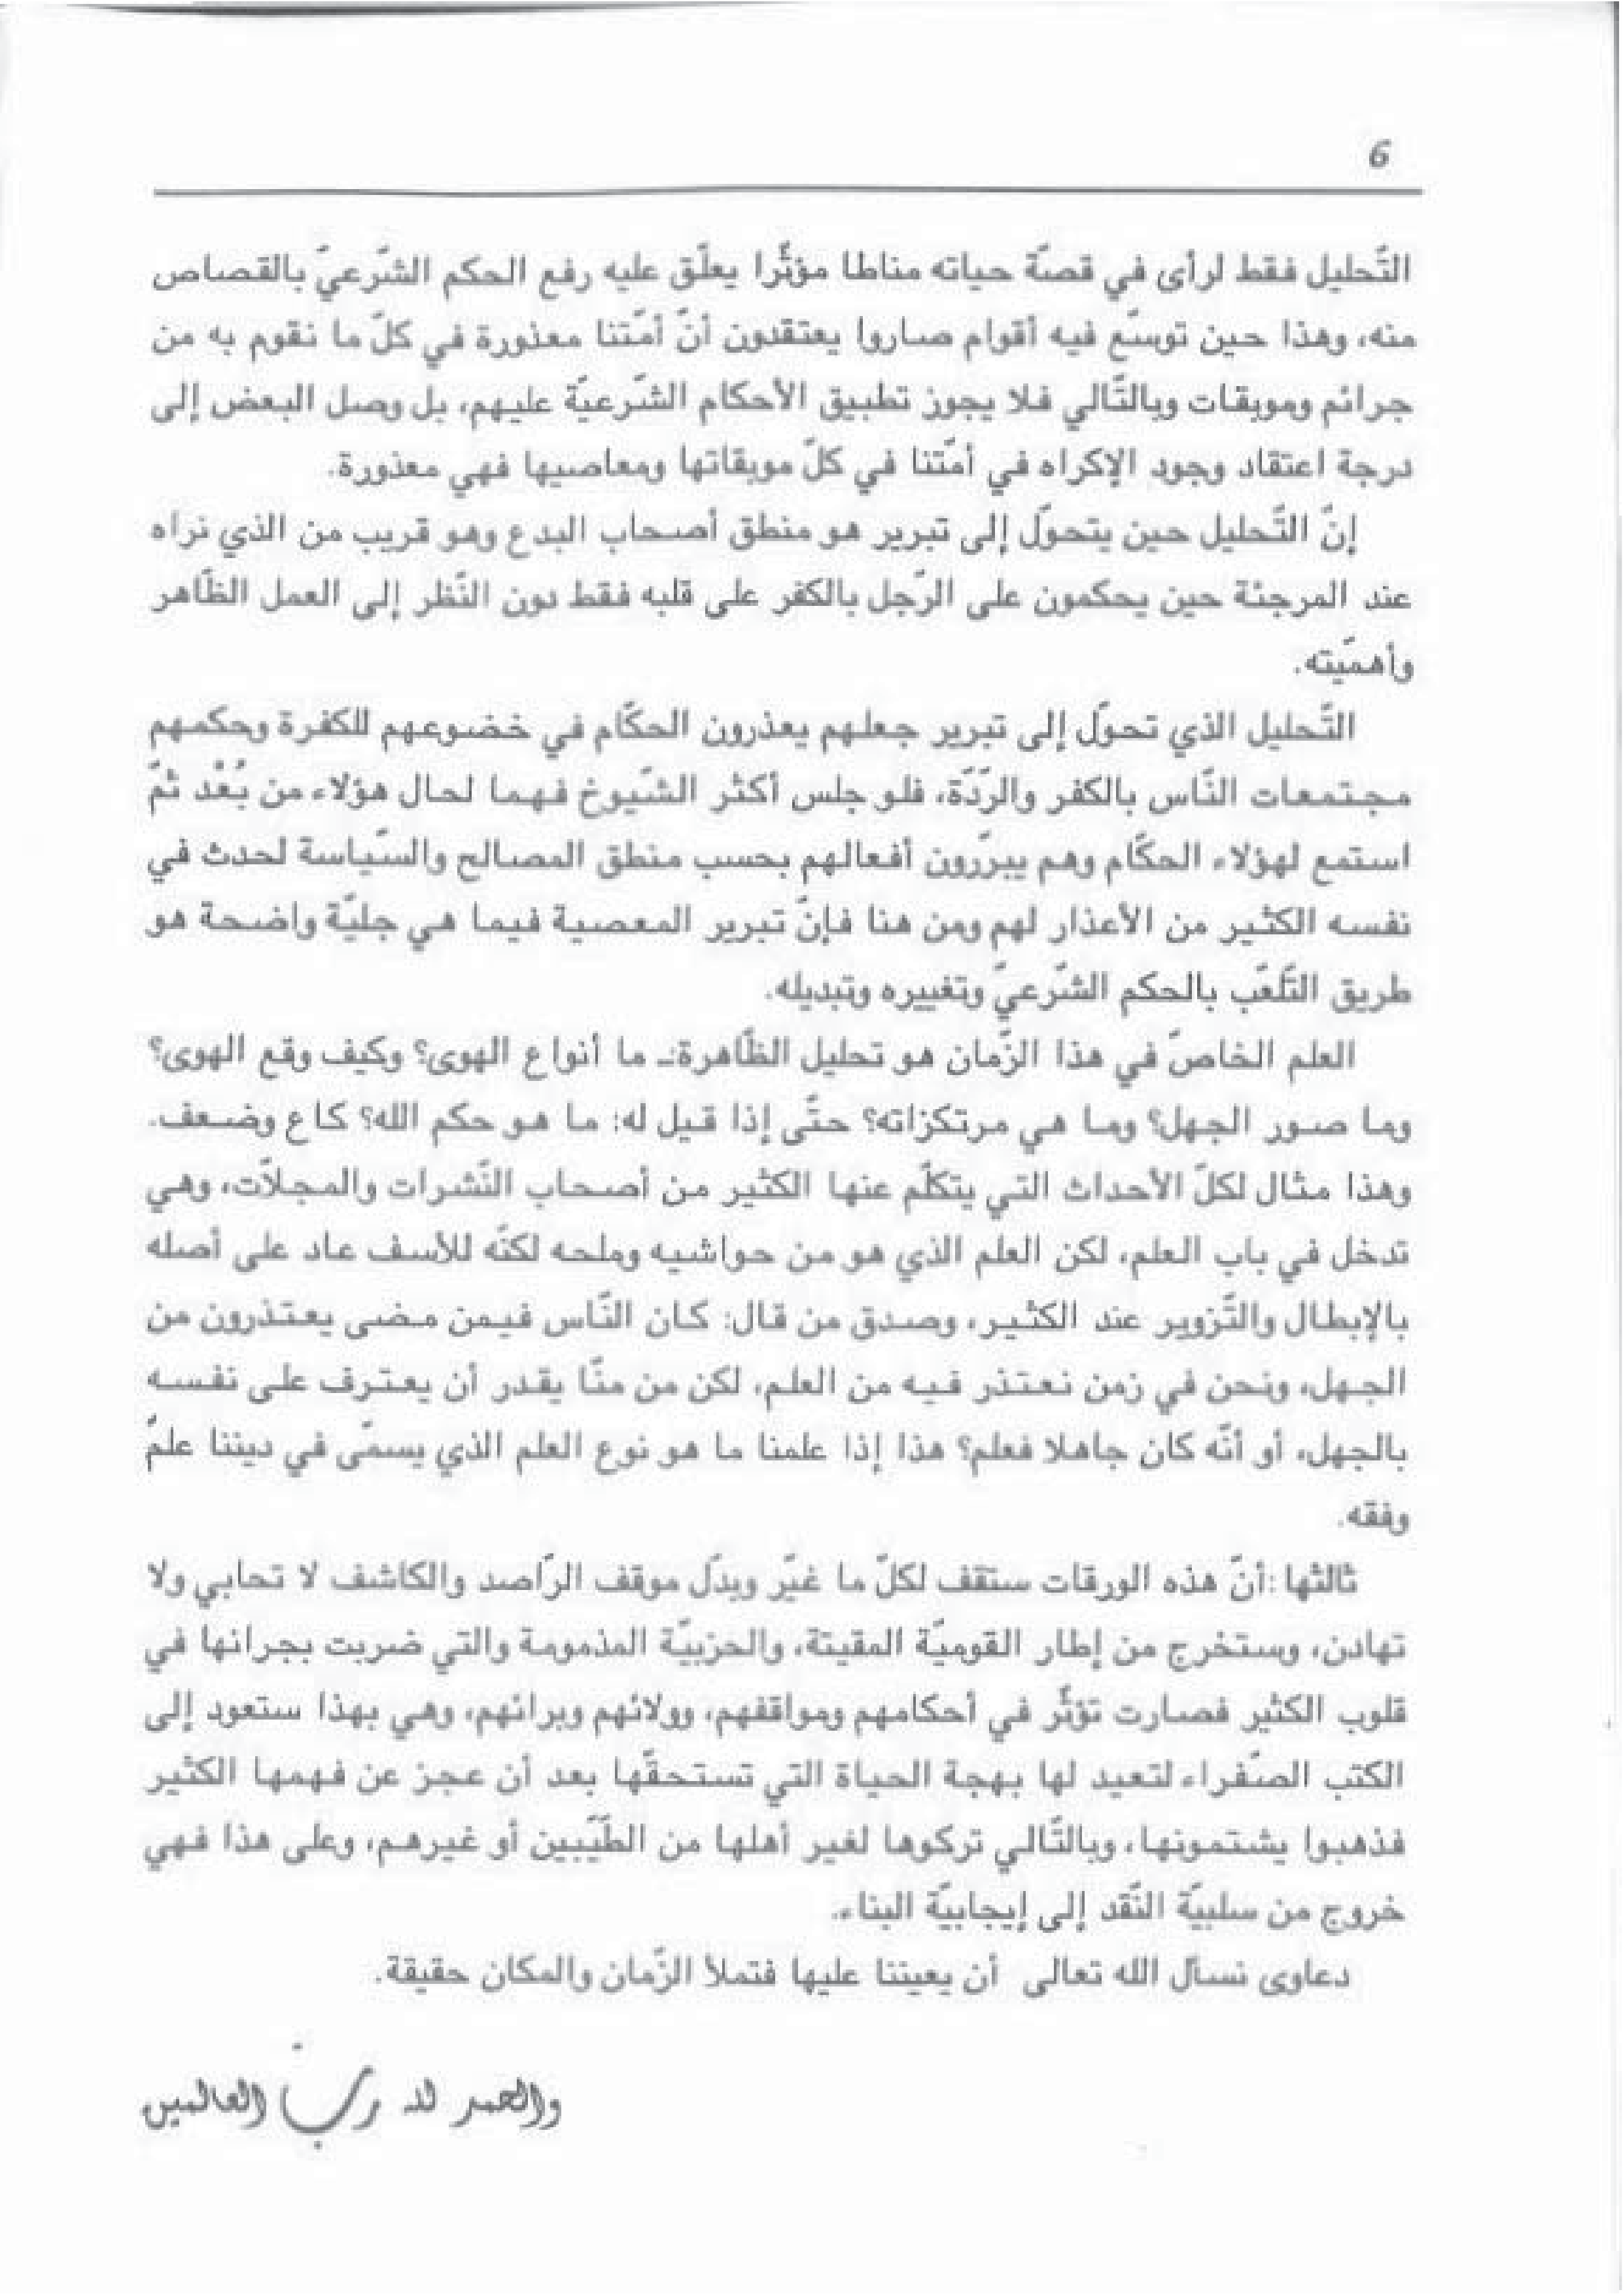 6
التّحليل فقط لرأى في قصّة حياته مناطا مؤثّرا يعلّق عليه رفع الحكم الشّرعيّ بالقصاص
منه، وهذا حين توسّع فيه أقوام صاروا يعتقدون أنّ أمّتنا معذورة في كلّ ما نقوم به من
جرائم وموبقات وبالتّالي فلا يجوز تطبيق الأحكام الشّرعيّة عليهم، بل وصل البعض إلى
درجة اعتقاد وجود الإكراه في أمّتنا في كلّ موبقاتها ومعاصيها فهي معذورة.
إنّ التّحليل حين يتحوّل إلى تبرير هو منطق أصحاب البدع وهو قريب من الذي نراه
عند المرجئة حين يحكمون على الرّجل بالكفر على قلبه فقط دون النّظر إلى العمل الظّاهر
وأهمّيته.
التّحليل الذي تحوّل إلى تبرير جعلهم يعذرون الحكّام في خضوعهم للكفرة وحكمهم
مجتمعات النّاس بالكفر والرّدّة، فلو جلس أكثر الشّيوخ فهما لحال هؤلاء من بُعْد ثمّ
استمع لهؤلاء الحكّام وهم يبرّرون أفعالهم بحسب منطق المصالح والسّياسة لحدث في
نفسه الكثير من الأعذار لهم ومن هنا فإنّ تبرير المعصية فيما هي جليّة واضحة هو
طريق التّلعّب بالحكم الشّرعيّ وتغييره وتبديله.
العلم الخاصّ في هذا الزّمان هو تحليل الظّاهرة:ـ ما أنواع الهوى؟ وكيف وقع الهوى؟
وما صور الجهل؟ وما هي مرتكزاته؟ حتّى إذا قيل له: ما هو حكم الله؟ كاع وضعف.
وهذا مثال لكلّ الأحداث التي يتكلّم عنها الكثير من أصحاب النّشرات والمجلاّت، وهي
تدخل في باب العلم، لكن العلم الذي هو من حواشيه وملحه لكنّه للأسف عاد على أصله
بالإبطال والتّزوير عند الكثير، وصدق من قال: كان النّاس فيمن مضى يعتذرون من
الجهل، ونحن في زمن نعتذر فيه من العلم، لكن من منّا يقدر أن يعترف على نفسه
بالجهل، أو أنّه كان جاهلا فعلم؟ هذا إذا علمنا ما هو نوع العلم الذي يسمّى في ديننا علمٌ
وفقه.
ثالثها :أنّ هذه الورقات ستقف لكلّ ما غيّر وبدّل موقف الرّاصد والكاشف لا تحابي ولا
تهادن، وستخرج من إطار القوميّة المقيتة، والحزبيّة المذمومة والتي ضربت بجرانها في
قلوب الكثير فصارت تؤثّر في أحكامهم ومواقفهم، وولائهم وبرائهم، وهي بهذا ستعود إلى
الكتب الصّفراء لتعيد لها بهجة الحياة التي تستحقّها بعد أن عجز عن فهمها الكثير
فذهبوا يشتمونها، وبالتّالي تركوها لغير أهلها من الطّيّبين أو غيرهم، وعلى هذا فهي
خروج من سلبيّة النّقد إلى إيجابيّة البناء.
دعاوى نسأل الله تعالى أن يعيننا عليها فتملأ الزّمان والمكان حقيقة.
والحمد لله ربّ العالمين